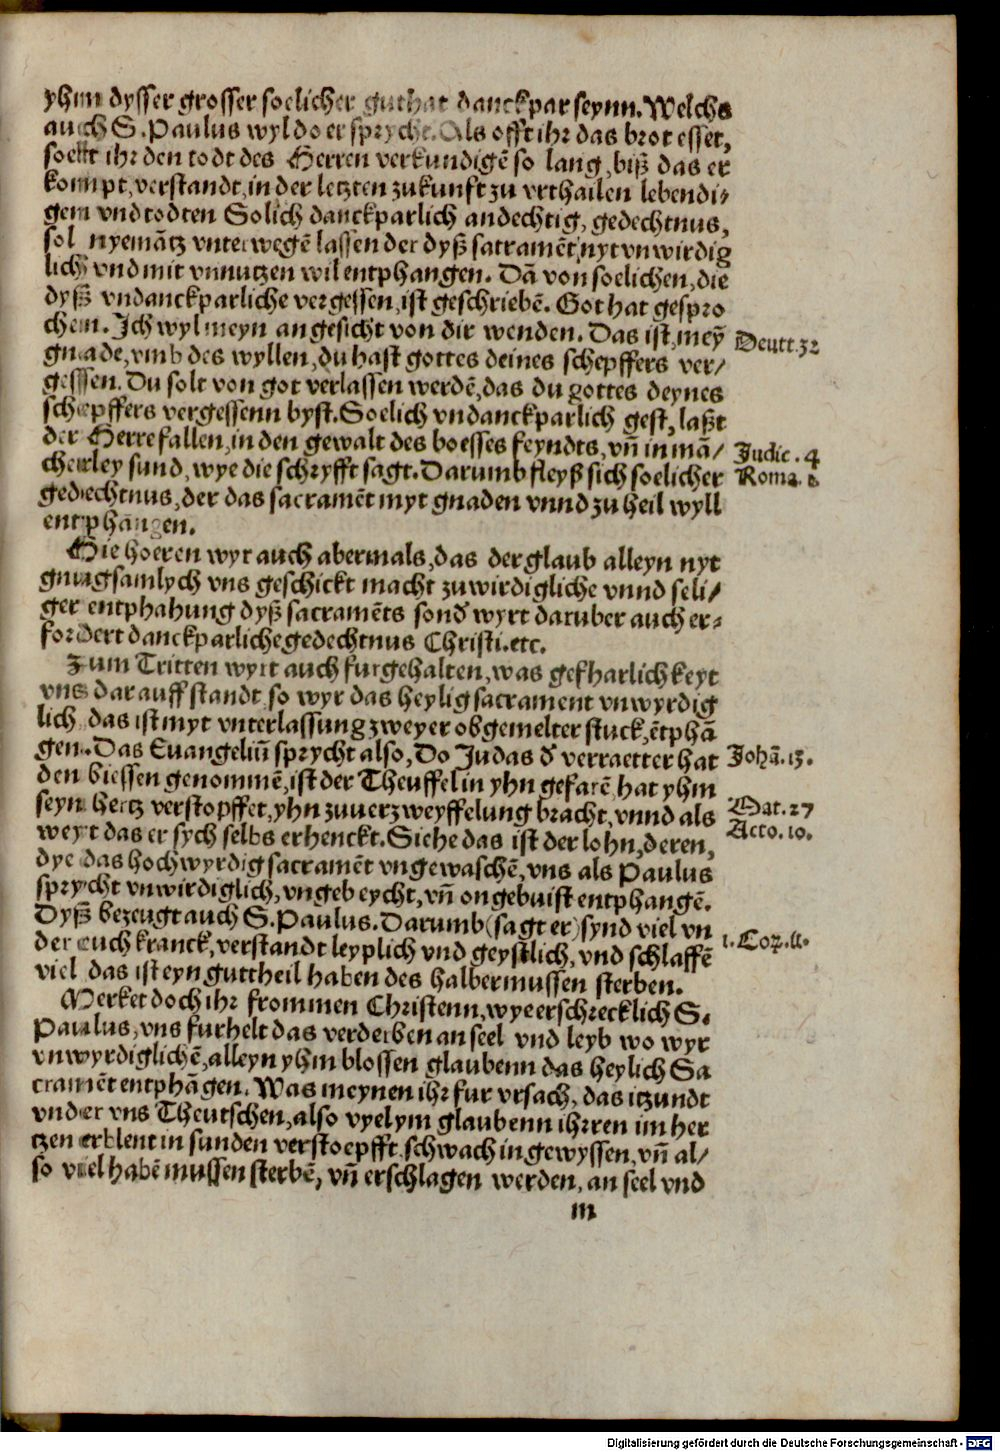 yhm dysser grosser soelicher guthat danckpar seynn. Welchs
auch S. Paulus wyl do er sprycht. Als offt ihr das brot esset,
soellt ihr den todt des Herren verkundigē so lang, biß das er
kompt, verstandt, in der letzten zukunfft zu vrthailen lebendi⸗
gem vnd todten Solich danckparlich andechtig, gedechtnus,
sol nyemātz vnterwegē lassen der dyß sacramēt, nyt vnwirdig
lich vnd mit vnnutzen wil entphangen. Dā von soelichen, die
dyß vndanckparliche vergessen, ist geschriebē. Got hat gespro
chen. Ich wyl meyn angesicht von dir wenden. Das ist, mey̅
gnade, vmb des wyllen, du hast gottes deines schepffers ver/
gesssen. Du solt von got verlassen werdē, das du gottes deynes
schepffers vergessenn byst. Soelich vndanckparlich gest, laßt
der Herre fallen, in den gewalt des boesses feyndts, vn̄ in mā/
cherley sund, wye die schryfft sagt. Darumb fleyß sich soelicher
gedechtnus, der das sacramēt myt gnaden vnnd zu heil wyll
entphangen.
Hie hoeren wyr auch abermals, das der glaub alleyn nyt
gnugsamlych vns geschickt macht zu wirdigliche vnnd seli/
ger entphahung dyß sacramēts sond̛ wyrt daruber auch er⸗
fordert danckparliche gedechtnus Christi. etc.
Zum Tritten wyrt auch furgehalten, was gefharlichkeyt
vns darauff standt, so wyr das heylig sacrament vnwyrdig
lich, das ist myt vnterlassung zweyer obgemelter stuck, ētphā
gen. Das Euangeliū sprycht also, Do Judas d̛ verraetter hat
den biessen genommē, ist der Theuffel in yhn gefarē, hat yhm
seyn hertz verstopffet, yhn zuuerzweyffelung bracht, vnnd als
weyt das er sych selbs erhenckt. Siehe das ist der lohn, deren,
dye das hochwyrdig sacramēt vngewaschē, vns als Paulus
sprycht vnwirdiglich, vngebeycht, vn̄ on gebuist entphangē.
Dyß bezeugt auch S. Paulus. Darumb (sagt er) synd viel vn
der euch kranck, verstandt leyplich vnd geystlich, vnd schlaffē
viel das ist eyn guttheil haben des halber mussen sterben.
Merket doch ihr frommen Christenn, wye erschrecklich S.
Paulus, vns furhelt das verderben an seel vnd leyb wo wyr
vnwyrdiglichē, alleyn yhm blossen glaubenn das heylich Sa
cramēt entphāgen. Was meynen ihr fur vrsach, das itzundt
vnder vns Theutschen, also vyel ym glaubenn ihrren im her
tzen erblent in sunden verstoepfft, schwach in gewyssen, vn̄ al/
so viel habē mussen sterbē, vn̄ erschlagen werden, an seel vnd
m
Deutt. 32
Judic. 4
Roma.
Johā. 13.
Mat. 27
Acto. 10.
1. Cor. 11.
Digitalisierung gefördert durch die Deutsche Forschungsgemeinschaft - DFG